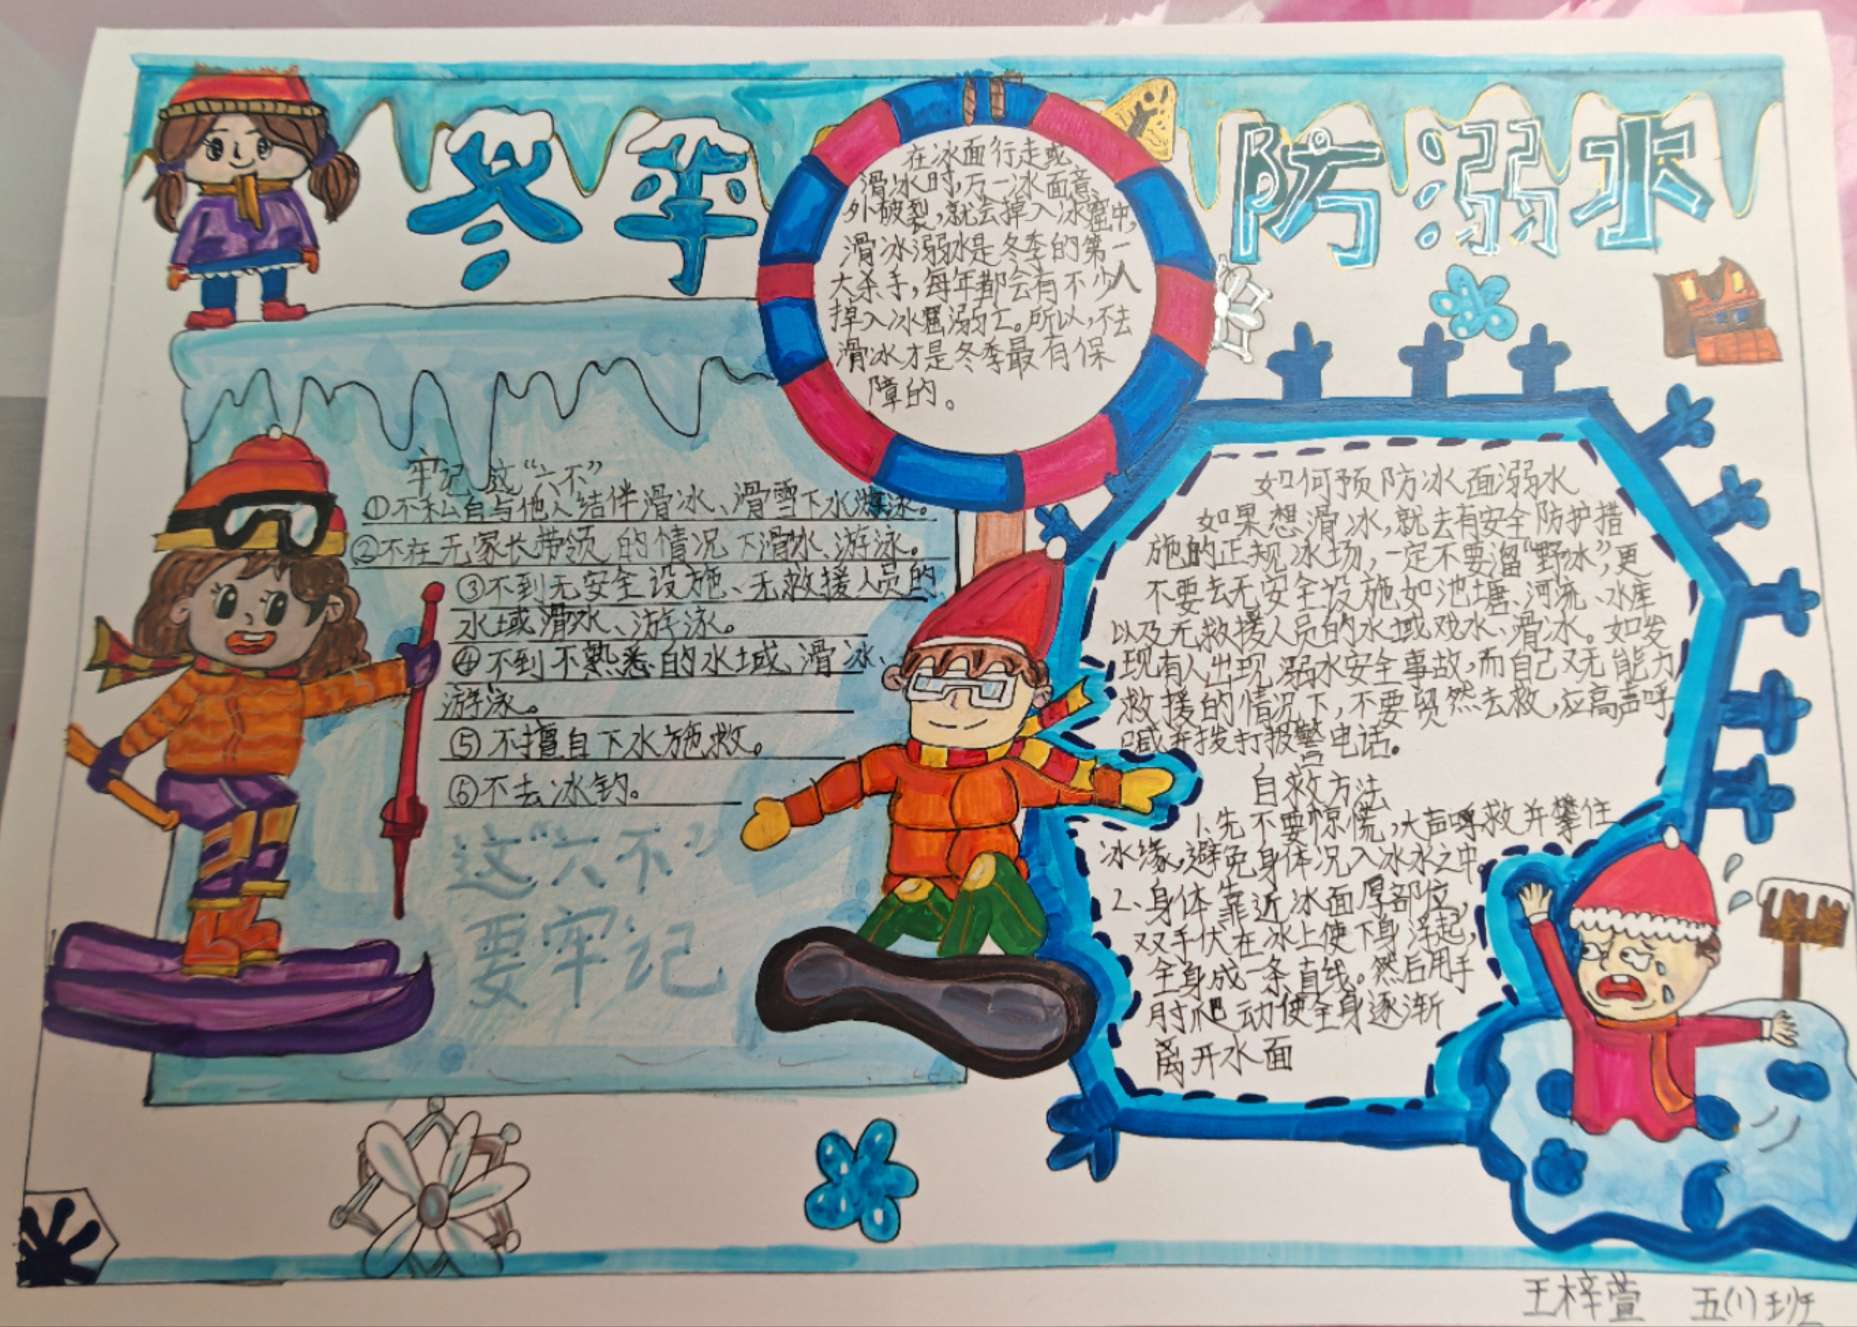 冬季
防溺水
在冰面行走或
滑冰时,万一冰面意
外破裂,就会掉入冰窟中,
滑冰溺水是冬季的第一
大杀手,每年都会有不少人
掉入冰窟溺亡。所以,不去
滑冰才是冬季最有保
障的。
牢记这“六不”
①不私自与他人结伴滑冰、滑雪下水游泳。
②不在无家长带领的情况下滑冰、游泳。
③不到无安全设施、无救援人员的
水域滑冰、游泳。
④不到不熟悉的水域、滑冰、
游泳。
⑤不擅自下水施救。
⑥不去冰钓。
这“六不”
要牢记
如何预防冰面溺水
如果想滑冰,就去有安全防护措
施的正规冰场,一定不要溜“野冰”,更
不要去无安全设施如池塘、河流、水库
以及无救援人员的水域戏水、滑冰。如发
现有人出现溺水安全事故,而自己又无能力
救援的情况下,不要贸然去救,应高声呼
喊并拨打报警电话。
自救方法
1、先不要惊慌,大声呼救并攀住
冰缘,避免身体况入冰水之中。
2、身体靠近冰面厚部位,
双手伏在冰上使下身浮起,
全身成一条直线。然后用手
肘爬动使全身逐渐
离开水面
王梓萱 五(1)班